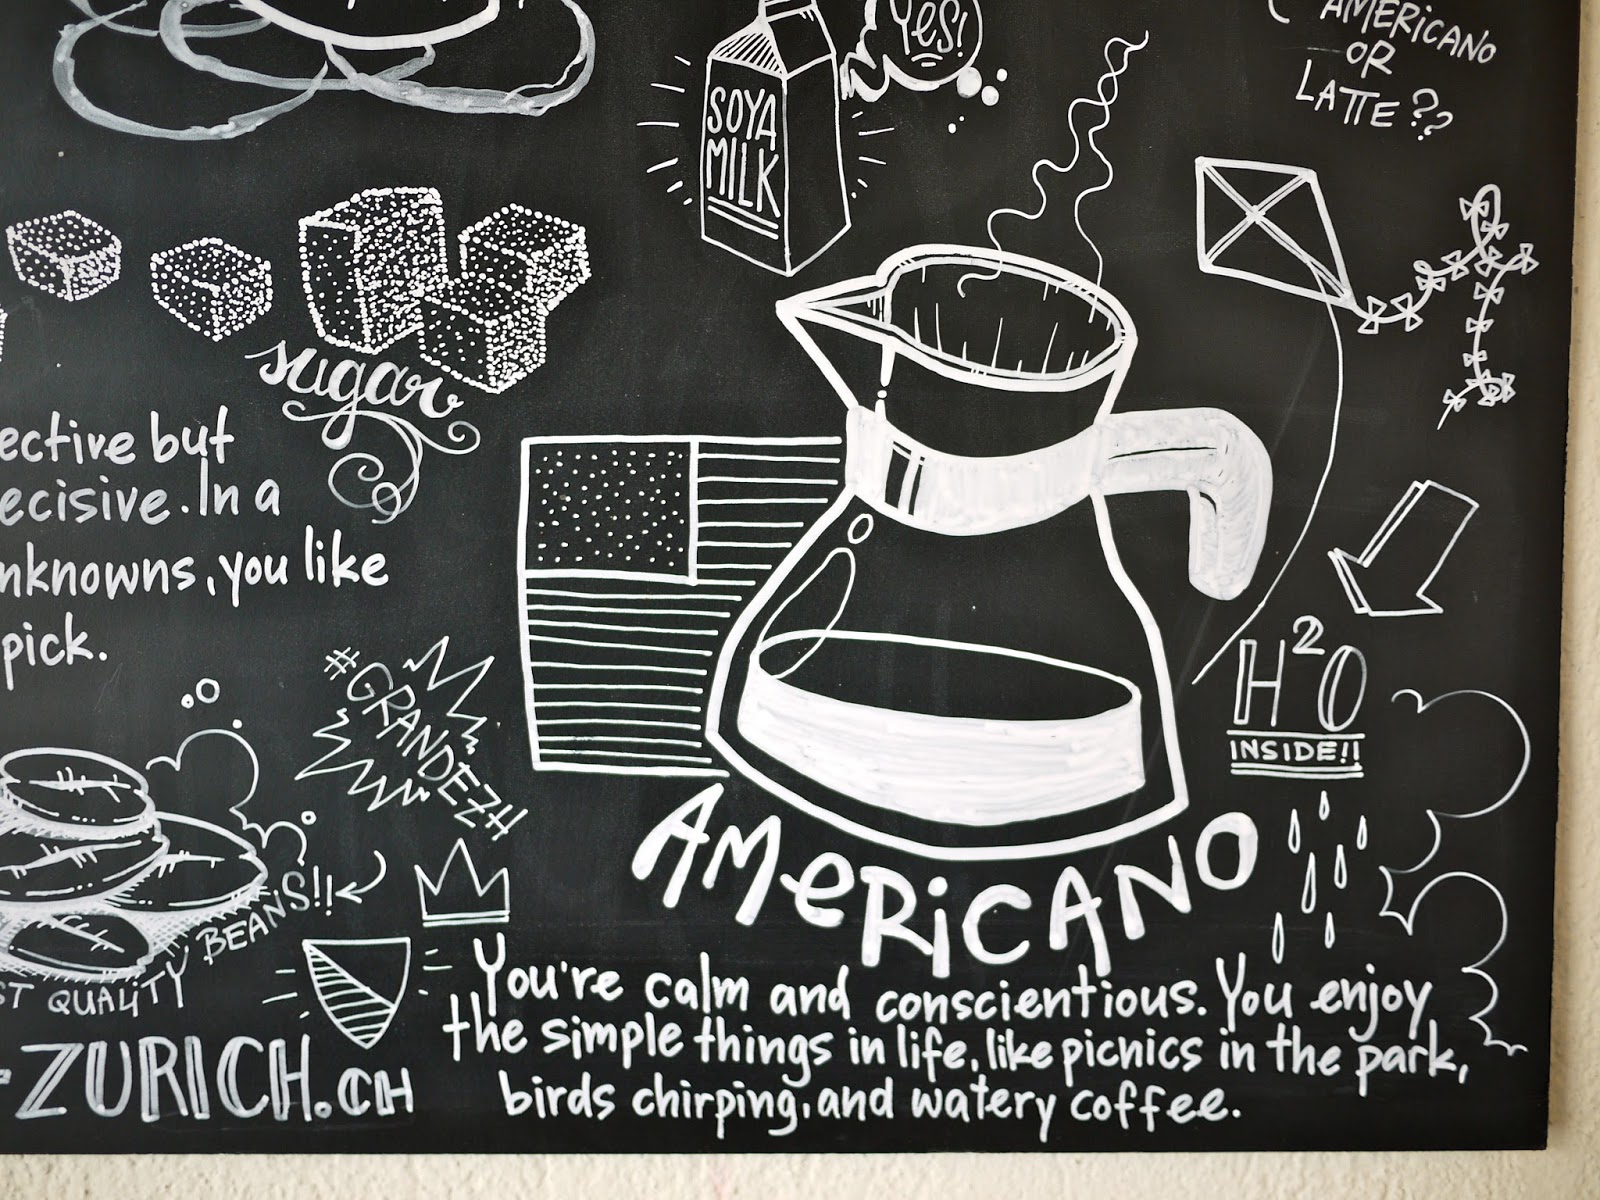 Yes!
AMERICANO
OR
LATTE??
SOYA
MILK
sugar
but
In a
you like
pick.
#GRANDEZH
H2O
INSIDE!!
QUALITY BEANS!!
ZURICH.CH
AMERiCANO
You're calm and conscientious. You enjoy
the simple things in life, like picnics in the park,
birds chirping, and watery coffee.